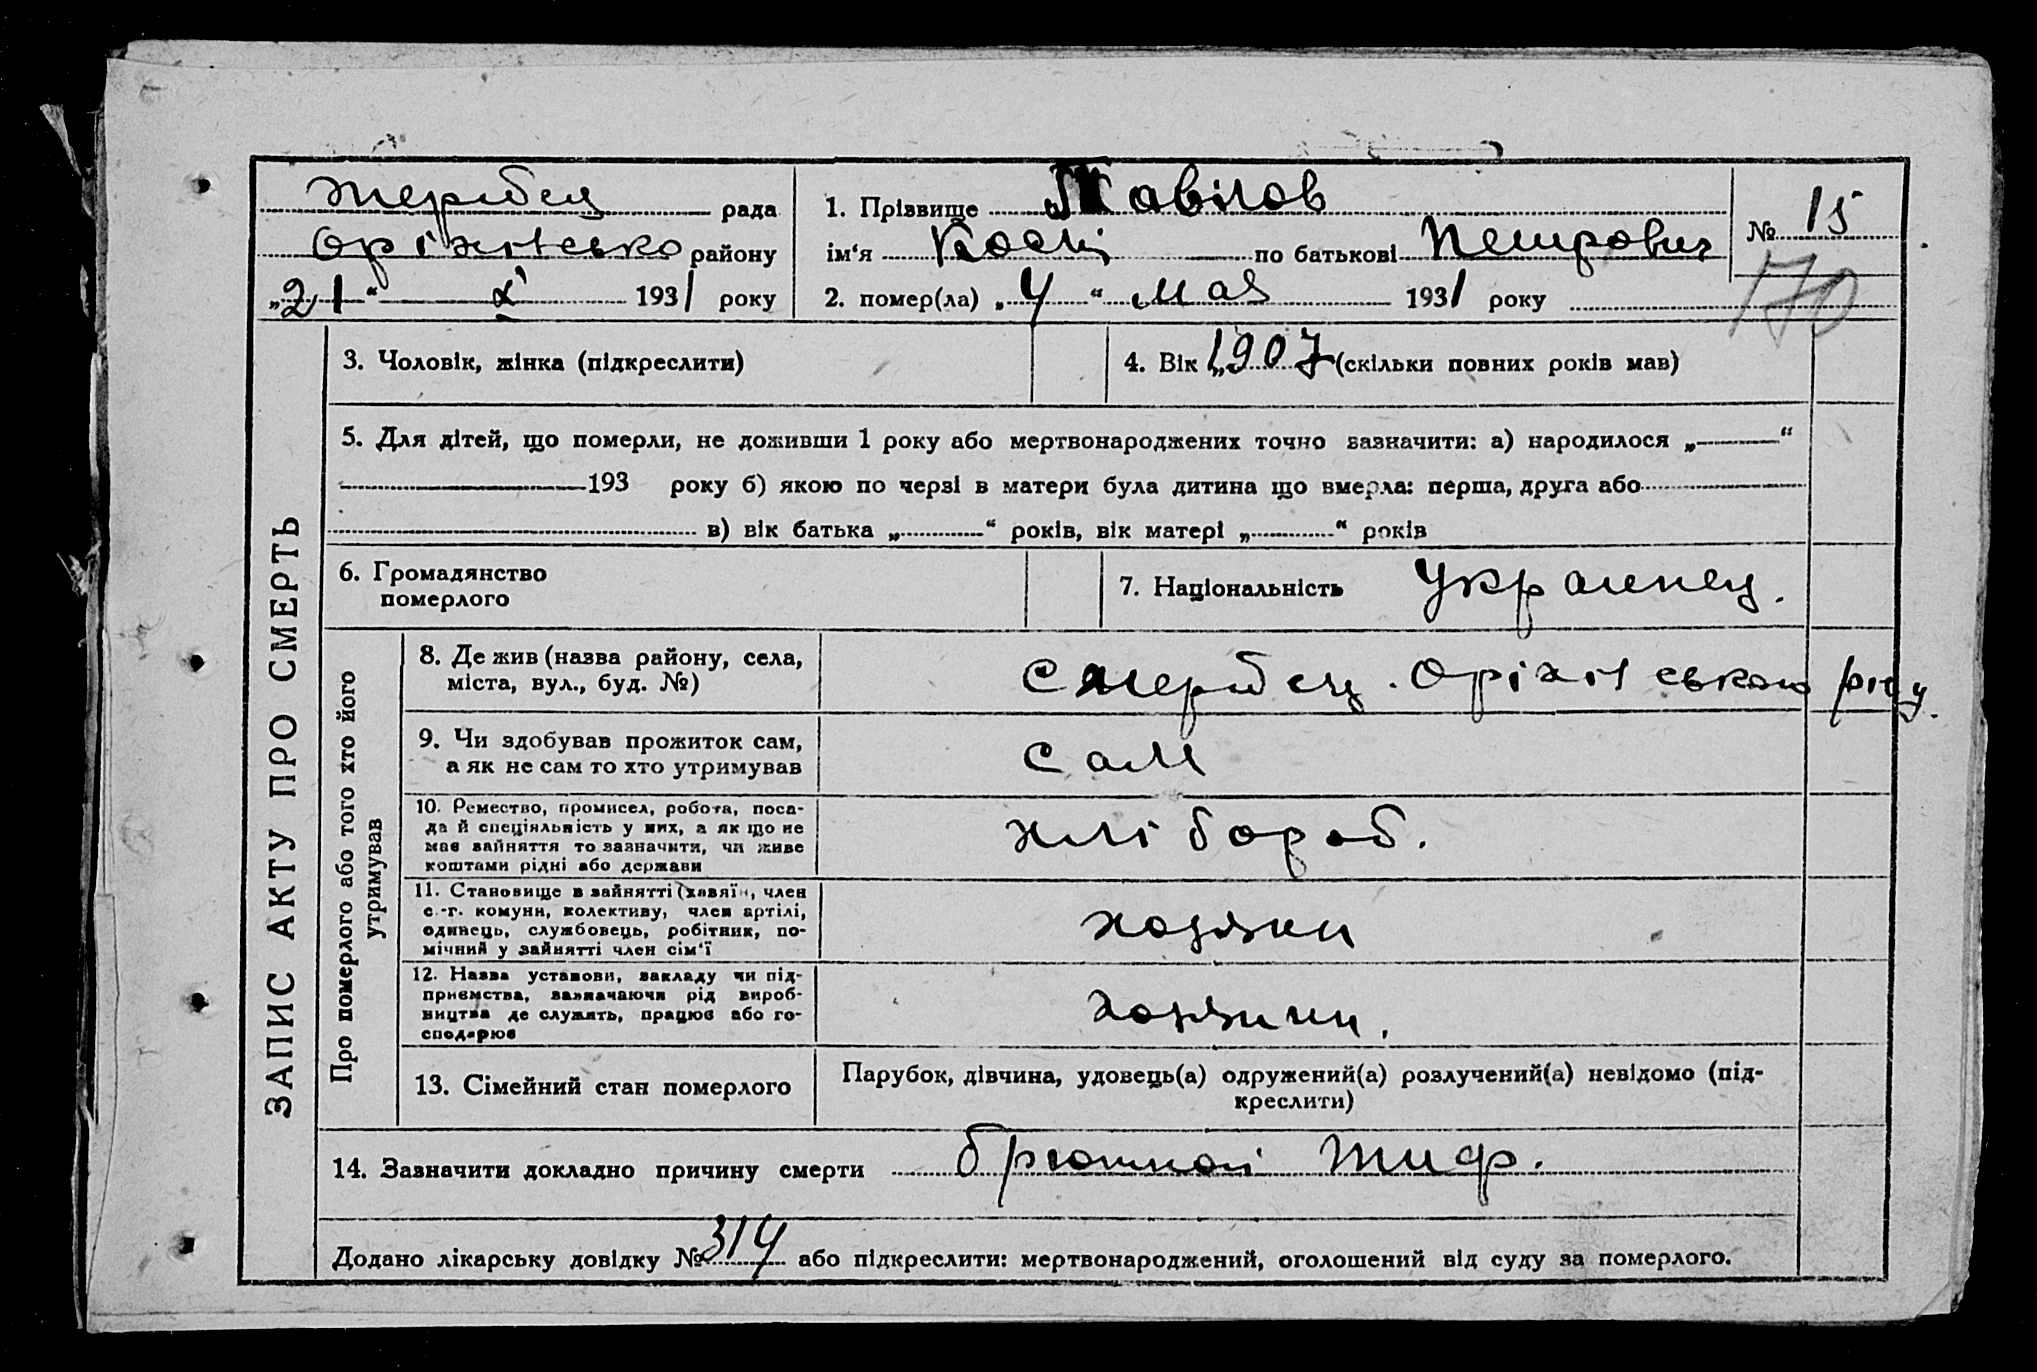 Жеребец рада
Оріхівсько району
„21“ X 1931 року
1. Прізвище
ім‘я Кость по батькові Петрович
2. помер(ла) „4“ мая 1931 року
№ 15
170
ЗАПИС АКТУ ПРО СМЕРТЬ
3. Чоловік, жінка (підкреслити)
4. Вік „1907 (скільки повних років мав)
5. Для дітей, що померли, не доживши 1 року або мертвонароджених точно зазначити: а) народилося „ “
193 року б) якою по черзі в матери була дитина що вмерла: перша, друга або
в) вік батька „ “ років, вік матері „ “ років
6. Громадянство
померлого
7. Національність Украинец.
Про померлого або того хто його
утримував
8. Де жив (назва району, села,
міста, вул., буд. №)
Оріхівського
9. Чи здобував прожиток сам,
а як не сам то хто утримував
сам
10. Ремество, промисел, робота, поса-
да й спеціяльність у них, а як що не
має зайняття то зазначити, чи живе
коштами рідні або держави
хлібороб.
11. Становище в зайнятті (хазяїн, член
с.-г. комуни, колективу, член артілі,
одинець, службовець, робітник, по-
мічний у зайнятті член сім‘ї
хозяин
12. Назва установи, закладу чи під-
приємства, зазначаючи рід вироб-
ництва де служить, працює або го-
сподарює
хозяин.
13. Сімейний стан померлого
Парубок, дівчина, удовець(а) одружений(а) розлучений(а) невідомо (під-
креслити)
14. Зазначити докладно причину смерти брюшной тиф.
Додано лікарську довідку № 314 або підкреслити: мертвонароджений, оголошений від суду за померлого.